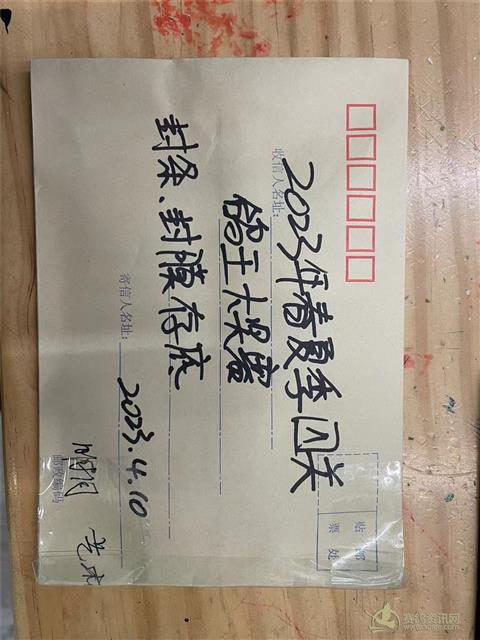 收信人名址:
2023年春夏季闯关
鸽王大奖赛
封条、封膜存底
寄信人名址:
2023.4.10
邮政编码
贴邮
票处
赛鸽资讯网